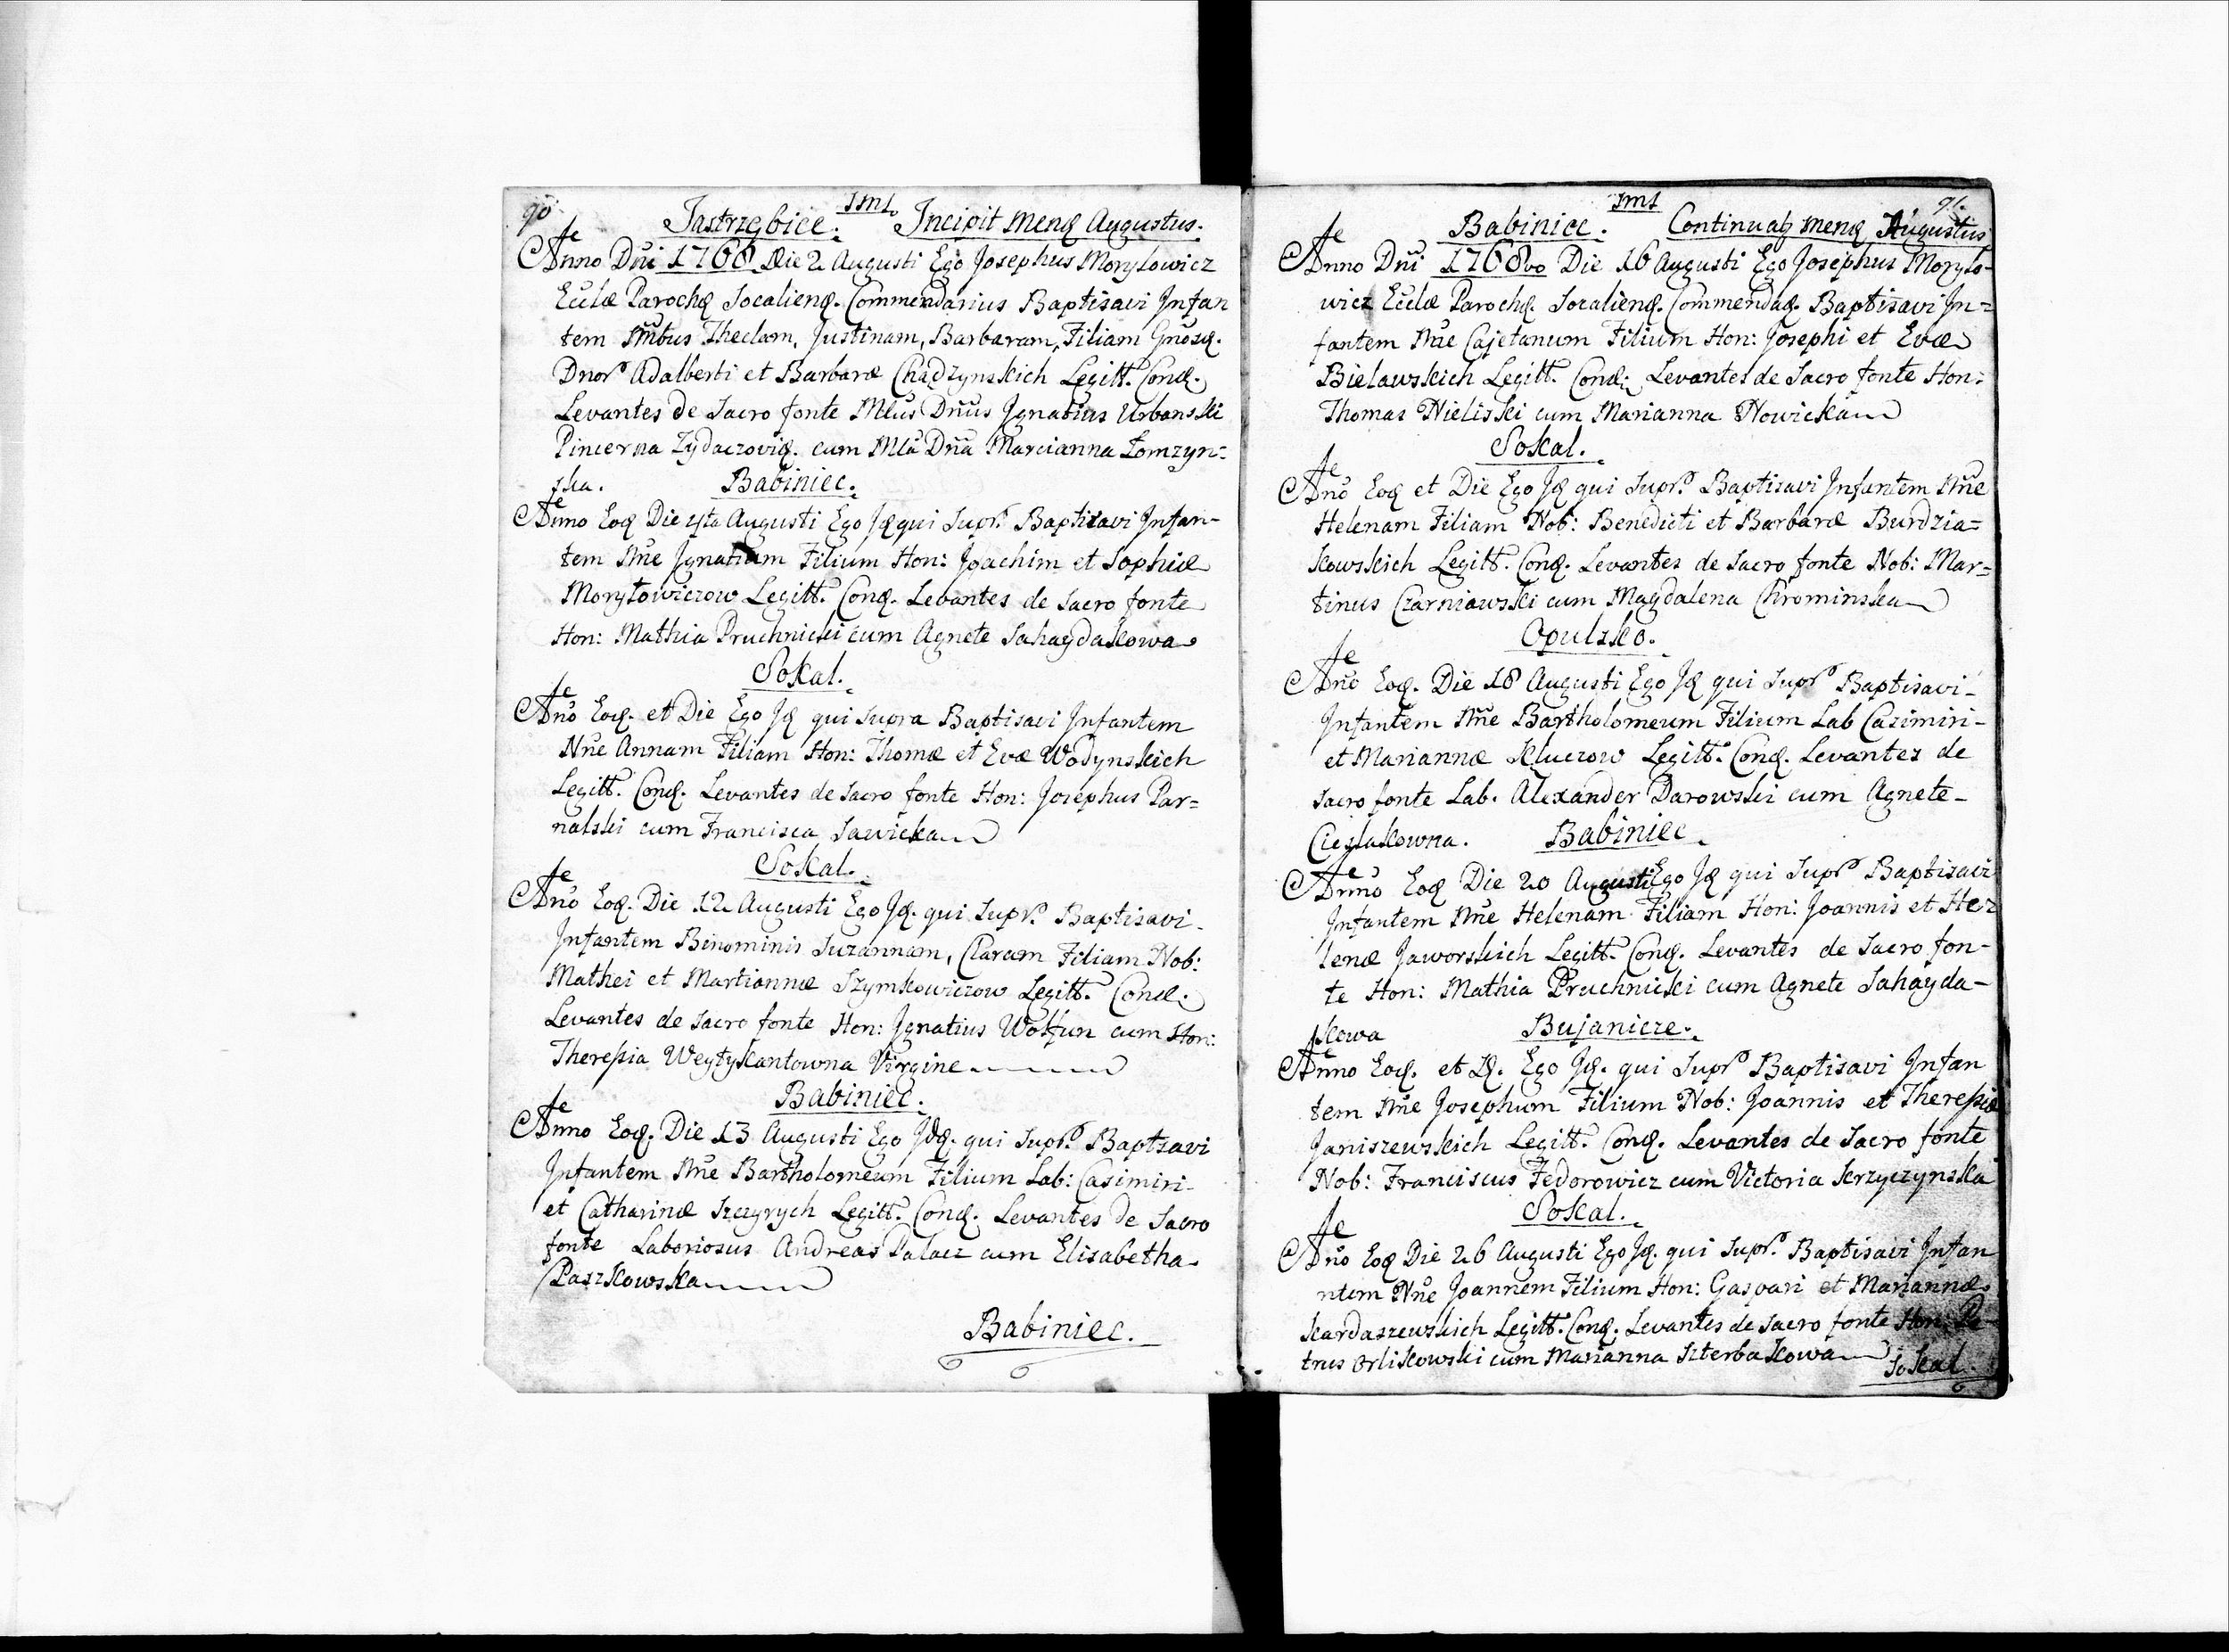 90 JMJ.
Jastrzębice. Incipit Mens Augustus.
Anno Dñi 1768 Die 2 Augusti Ego Josephus Moryłowicz
Ecclæ Parochs Socaliens. Commendarius Baptisavi Infan
tem Nñibus Theclam, Justinam, Barbaram, Filiam Gnosq.
Dnor Adalberti et Barbaræ Chądzynskich Legitt. Conq.
Levantes de Sacro fonte Mlus Dnus Ignatius Urbanski
Pincerna Zydaczoviq. cum Mla Dña Marcianna Łomzyn=
ska. Babiniec.
Anno Eoq Die 4ta Augusti Ego Jq qui Supr. Baptizavi Infan-
tem Nñe Ignatium Filium Hon: Joachim et Sophiæ
Moryłowiczow Legitt. Conq. Levantes de Sacro fonte
Hon: Mathia Pruchnicki cum Agnete Sahaydakowa
Sokal.
Año Eoq. et Die Ego Jq qui Supra Baptisavi Infantem
Nñe Annam Filiam Hon: Thomæ et Evæ Wodynskich
Legitt. Conq. Levantes de Sacro fonte Hon: Josephus Par=
nalski cum Francisca Sawicka
Sokal.
Año Eoq. Die 12 Augusti Ego Jq. qui Supr. Baptisavi
Infantem Binominis Suzannam, Claram Filiam Nob:
Mathei et Martiannæ Szymkowiczow Legitt. Conq.
Levantes de Sacro fonte Hon: Ignatius Wołfun cum Hon:
Theressia Weytykantowna Virgine
Babiniec.
Anno Eoq. Die 13 Augusti Ego Jdq. qui Supr. Baptsavi
Infantem Nñe Bartholomeum Filium Lab: Casimiri
et Catharinæ Szczyrych Legitt. Conq. Levantes de Sacro
fonte Laboriosus Andreas Palacz cum Elisabetha
Paszkowska
Babiniec.
JMJ 91.
Babinice. Continuatq Mens Augustus
Anno Dñi 1768vo Die 16 Augusti Ego Josephus Moryło-
wicz Ecclæ Parochq. Socalienq. Commendaq. Baptisavi In=
fantem Nñe Cajetanum Filium Hon: Josephi et Evæ
Bielawskich Legitt. Conq: Levantes de Sacro fonte Hon:
Thomas Nieliski cum Marianna Nowicka
Sokal.
Año Eoq et Die Ego Jq qui Supr. Baptisavi Infantem Nñe
Helenam Filiam Nob: Benedicti et Barbaræ Burdzia=
kowskich Legitt. Conq. Levantes de Sacro fonte Nob: Mar=
tinus Czarniawski cum Magdalena Chrominska
Opulsko.
Año Eoq. Die 18 Augusti Ego Jq qui Supr Baptisavi
Infantem Nñe Bartholomeum Filium Lab Casimiri-
et Mariannæ Kluczow Legitt. Conq. Levantes de
Sacro fonte Lab. Alexander Darowski cum Agnete-
Cieslakowna. Babiniec.
Anno Eoq Die 20 Augusti Ego Jq qui Supr Baptisavi
Infantem Nñe Helenam Filiam Hon: Joannis et He=
lenæ Jaworskich Legitt. Conq. Levantes de Sacro fon-
te Hon: Mathia Pruchnicki cum Agnete Sahayda-
kowa Bujanicze.
Anno Eoq. et Dq. Ego Jq. qui Supr Baptisavi Infan
tem Nñe Josephum Filium Nob: Joannis et Theressiæ
Janiszewskich Legitt. Conq. Levantes de Sacro fonte
Nob: Franciscus Fedorowicz cum Victoria Krzyczynska
Sokal.
Año Eoq Die 26 Augusti Ego Jq. qui Supr. Baptisavi Infan
ntem Nñe Joannem Filium Hon: Gaspari et Mariannæ
Kardaszewskich Legitt. Conq. Levantes de Sacro fonte Hon: Pe-
trus Orlikowski cum Marianna Szterbakowa
Sokal.